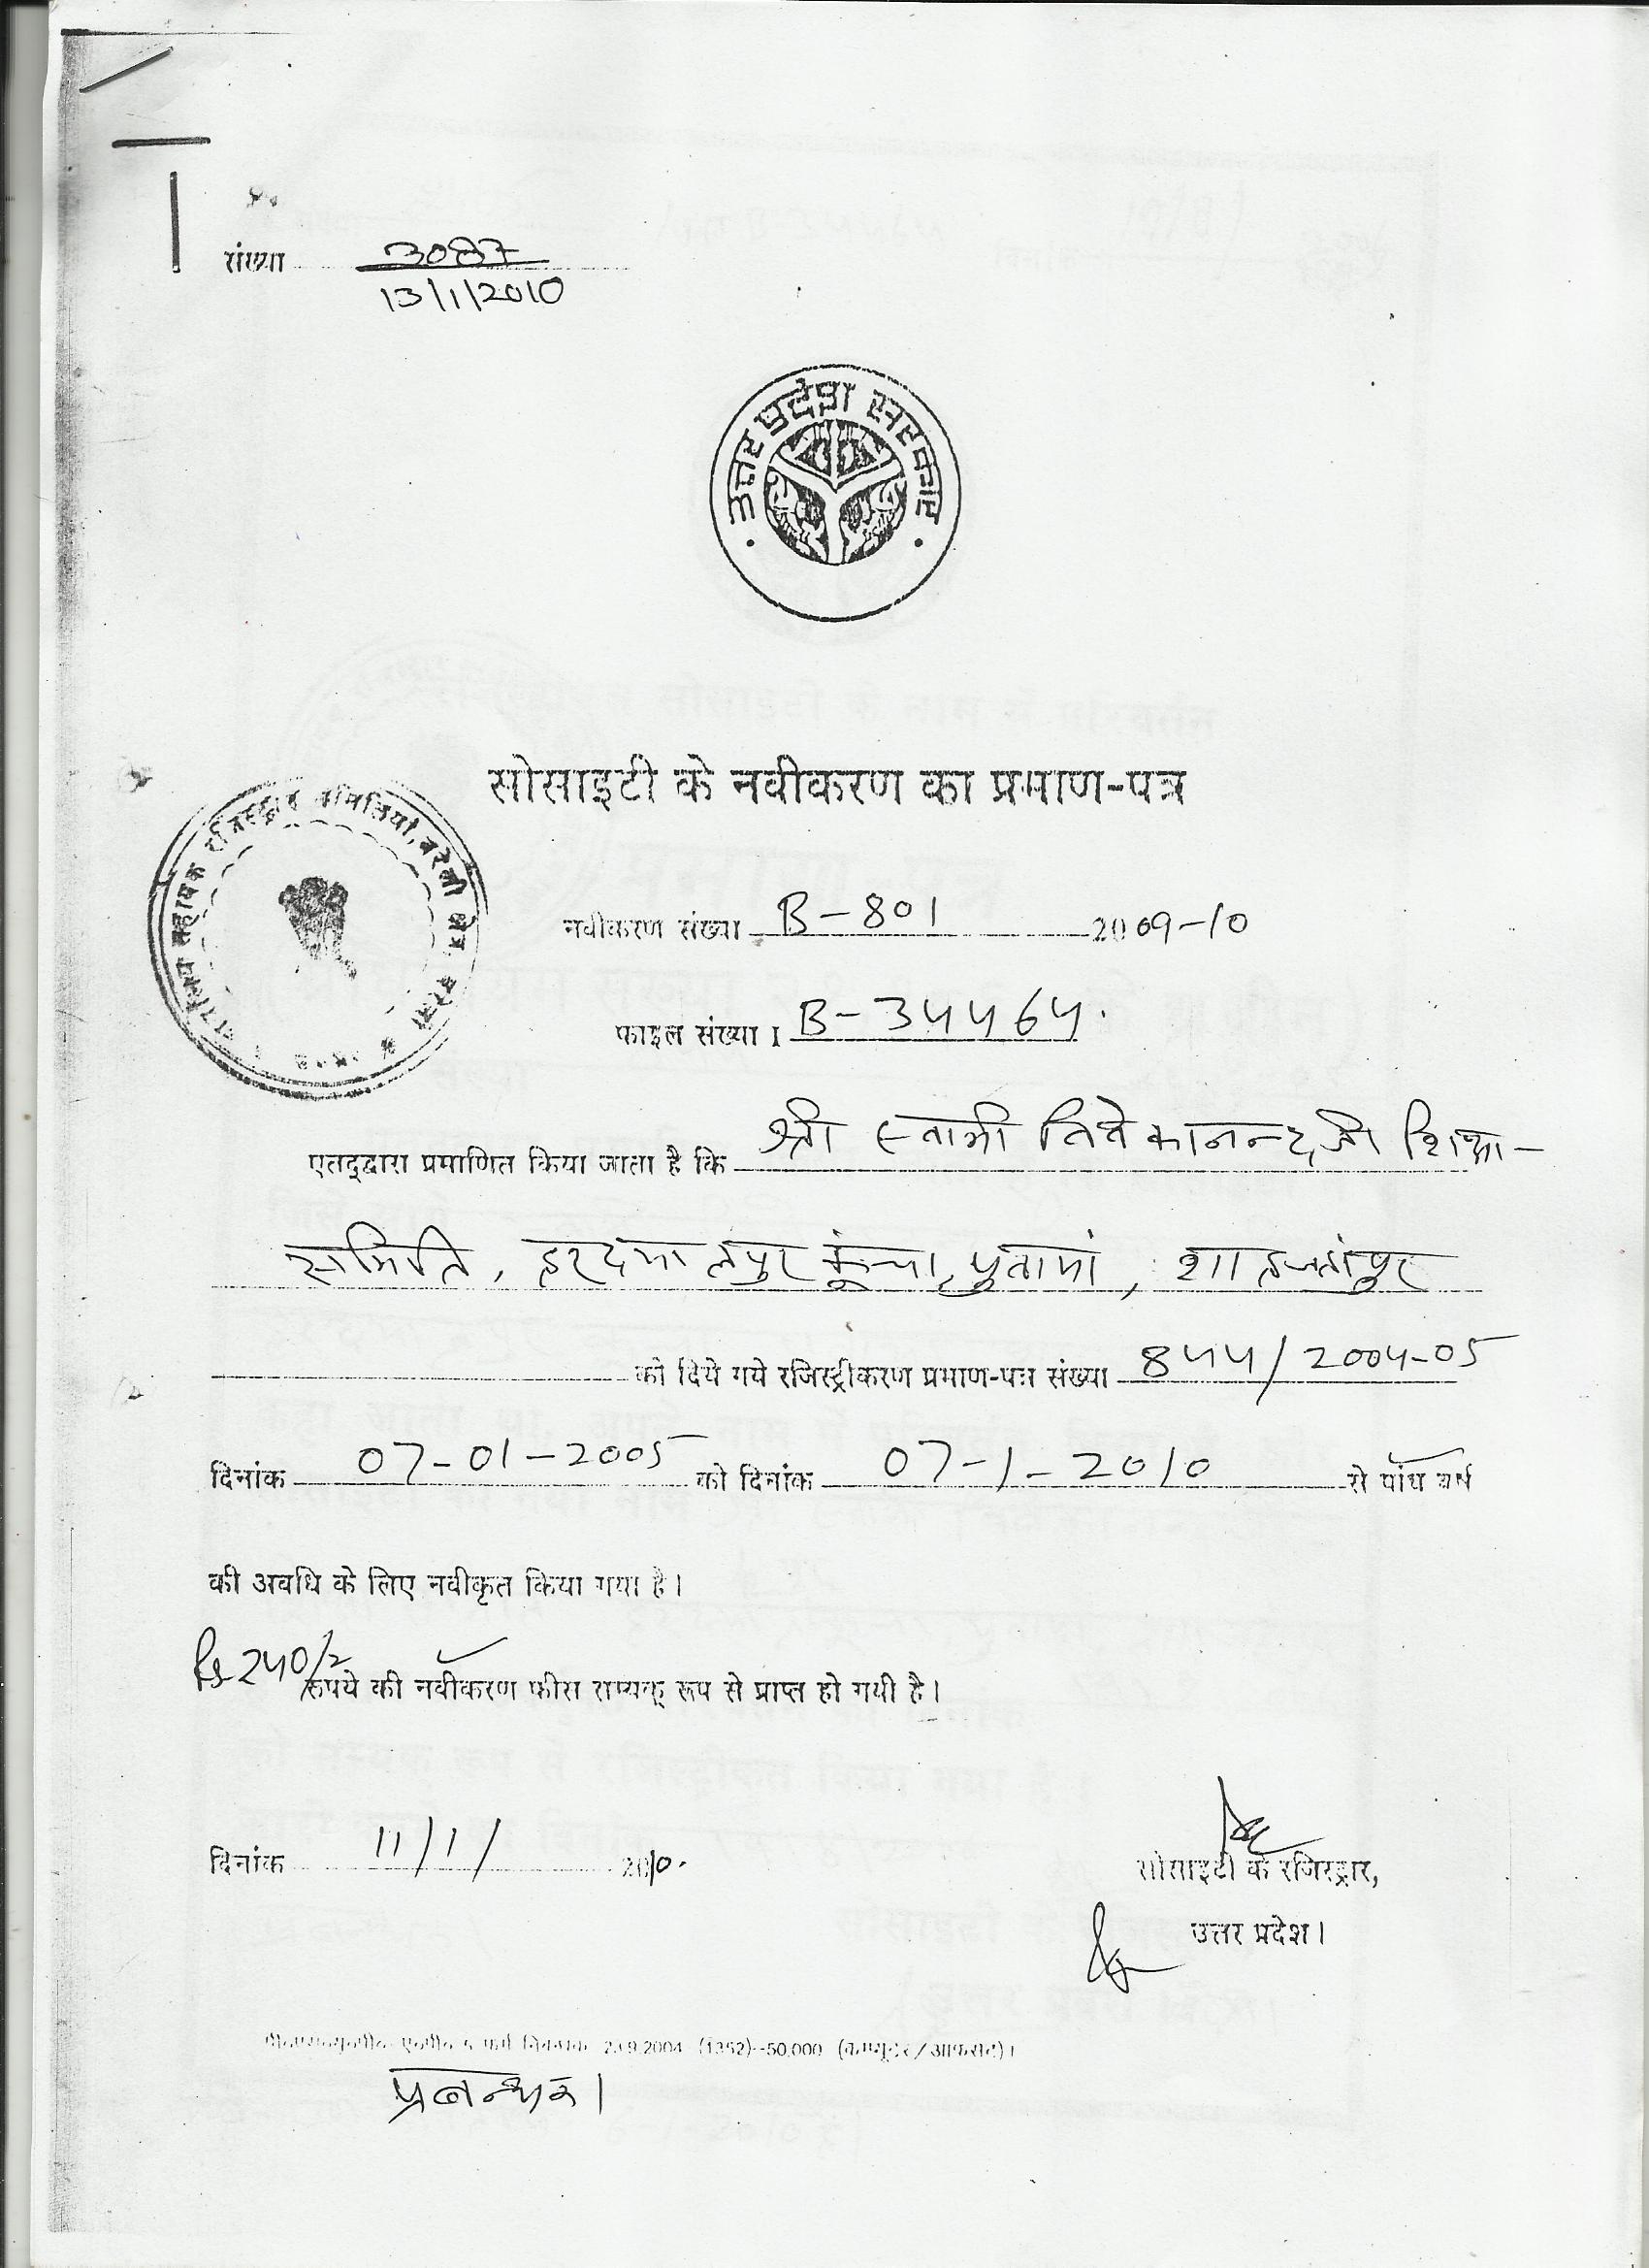 संख्या 3087
13/1/2010
उत्तर प्रदेश सरकार
सोसाइटी के नवीकरण का प्रमाण-पत्र
कार्यालय सहायक रजिस्ट्रार समितियां, बरेली क्षेत्र बरेली
नवीकरण संख्या B-801 2009-10
फाइल संख्या। B-34464.
एतद्द्वारा प्रमाणित किया जाता है कि श्री स्वामी विवेकानन्द जी शिक्षा-
समिति, हरदयालपुर कूंचा, पुवायां, शाहजहांपुर
को दिये गये रजिस्ट्रीकरण प्रमाण-पत्र संख्या 844/2004-05
दिनांक 07-01-2005 को दिनांक 07-1-2010 से पाँच वर्ष
की अवधि के लिए नवीकृत किया गया है।
Rs 240/= रुपये की नवीकरण फीस सम्यक् रूप से प्राप्त हो गयी है।
दिनांक 11/1/ 2010.
सोसाइटी के रजिस्ट्रार,
उत्तर प्रदेश।
23.9.2004 (1352)--50,000 (कम्प्यूटर/आफसेट)।
प्रबन्धक।